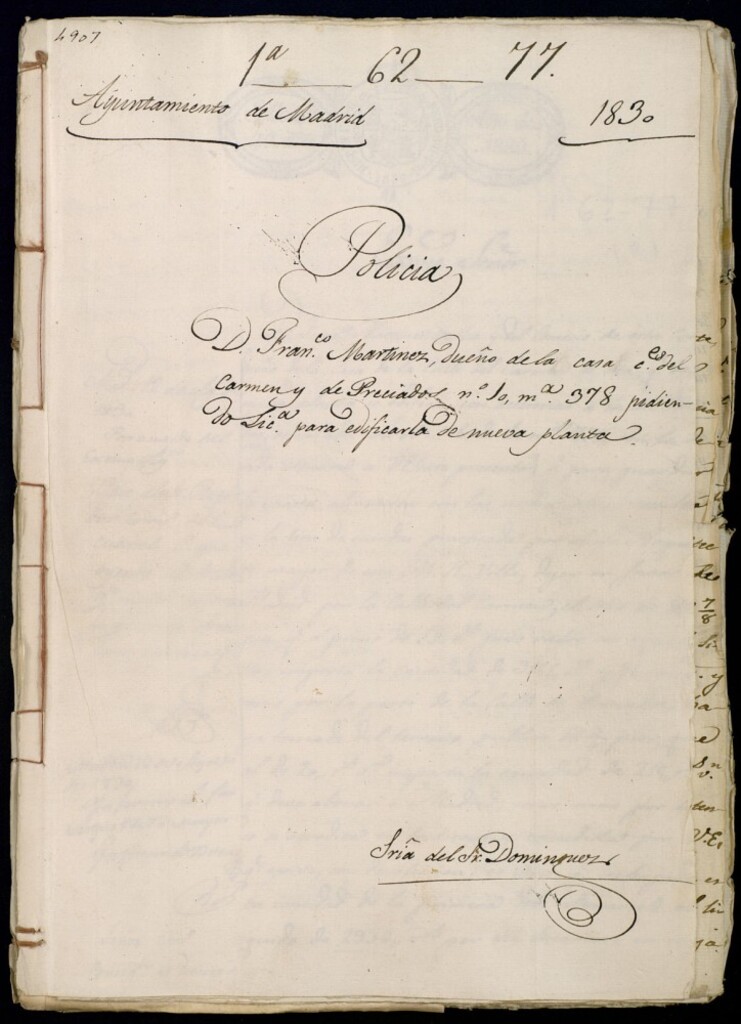 4907
1ª 62 77.
Ayuntamiento de Madrid 1830
Policia
D. Fran.co Martinez, dueño de la casa c.es del
Carmen y de Preciados n.º 10, m.ª 378 pidien-
do Lic.ª para edificarla de nueva planta.
Sría del Sr. Dominguez